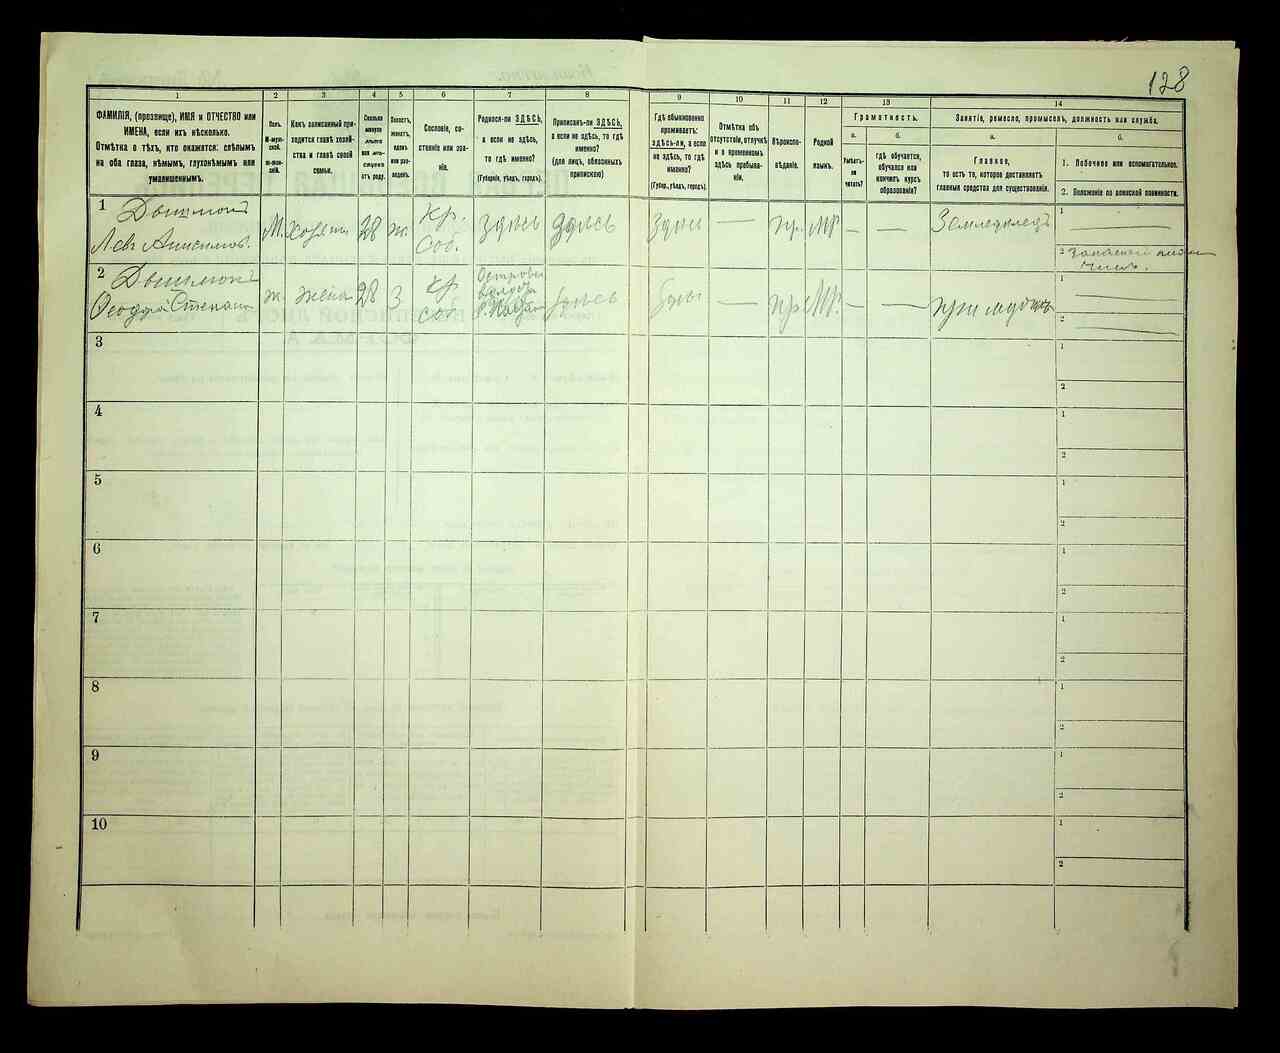 128
1
2
3
4
5
6
7
8
9
10
11
12
13
14
ФАМИЛІЯ, (прозвище), ИМЯ и ОТЧЕСТВО или
ИМЕНА, если ихъ нѣсколько.
Отмѣтка о тѣхъ, кто окажется: слѣпымъ
на оба глаза, нѣмымъ, глухонѣмымъ или
умалишеннымъ.
Полъ.
М-муж-
ской.
ж-жен-
скій.
Какъ записанный при-
ходится главѣ хозяй-
ства и главѣ своей
семьи.
Сколько
минуло
лѣтъ
или мѣ-
сяцевъ
отъ роду.
Холостъ,
женатъ,
вдовъ
или раз-
веденъ.
Сословіе, со-
стояніе или зва-
ніе.
Родился-ли ЗДѢСЬ,
а если не здѣсь,
то гдѣ именно?
(Губернія, уѣздъ, городъ).
Приписанъ-ли ЗДѢСЬ,
а если не здѣсь, то гдѣ
именно?
(для лицъ, обязанныхъ
припискою)
Гдѣ обыкновенно
проживаетъ:
ЗДѢСЬ-ЛИ, а если
не здѣсь, то гдѣ
именно?
(Губер., уѣздъ, городъ).
Отмѣтка объ
отсутствіи, отлучкѣ
и о временномъ
здѣсь пребыва-
ніи.
Вѣроиспо-
вѣданіе.
Родной
языкъ.
Грамотность.
а.
Умѣетъ-
ли
читать?
б.
гдѣ обучается,
обучался или
кончилъ курсъ
образованія?
Занятіе, ремесло, промыселъ, должность или служба.
а.
Главное,
то есть то, которое доставляетъ
главныя средства для существованія.
б.
1. Побочное или вспомогательное.
2. Положеніе по воинской повинности.
1
Левъ
М.
Хозяинъ
28
ж.
Кр.
соб.
Здѣсь
здѣсь
Здѣсь
—
пр.
мр
—
—
Земледѣлецъ
1
2
2
ж.
жена
28
З
Кр
соб
здѣсь
здѣсь
—
пр
мр.
—
—
при мужѣ
1
2
3
1
2
4
1
2
5
1
2
6
1
2
7
1
2
8
1
2
9
1
2
10
1
2